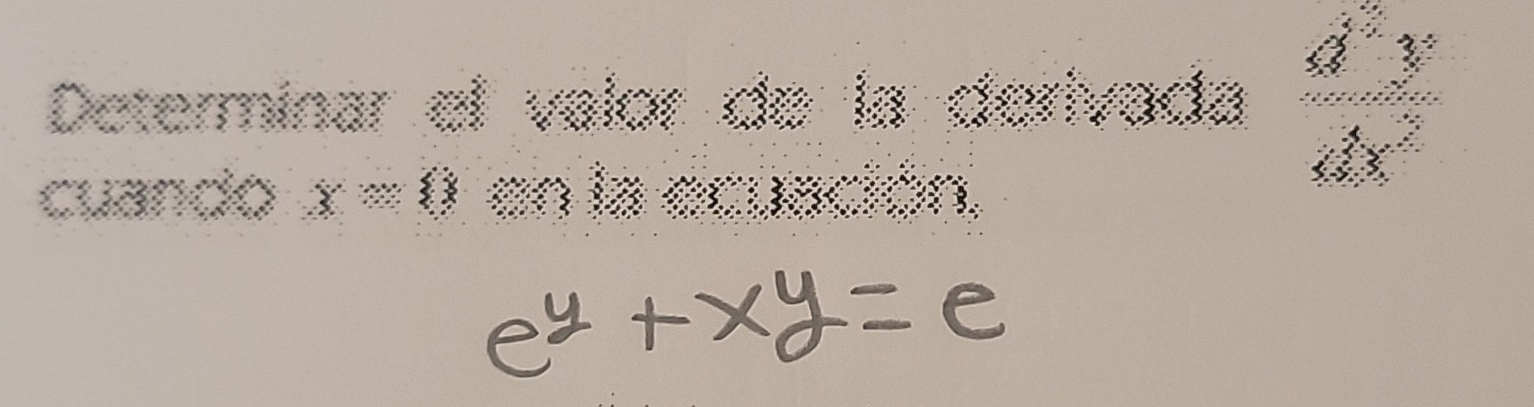 Determinar el valor de la derivada d²y/dx²
cuando x = 0 en la ecuación,
e^y + xy = e